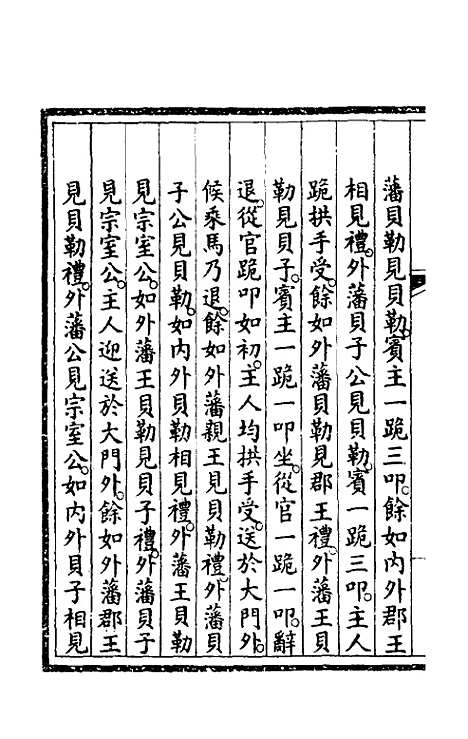 藩貝勒見貝勒。賓主一跪三叩。餘如內外郡王
相見禮。外藩貝子公見貝勒。賓一跪三叩。主人
跪拱手受。餘如外藩貝勒見郡王禮。外藩王貝
勒見貝子。賓主一跪一叩坐。從官一跪一叩。辭
退。從官跪叩如初。主人均拱手受。送於大門外。
候乘馬乃退。餘如外藩親王見貝勒禮。外藩貝
子公見貝勒。如內外貝勒相見禮。外藩王貝勒
見宗室公。如外藩王貝勒見貝子禮。外藩貝子
見宗室公。主人迎送於大門外。餘如外藩郡王
見貝勒禮。外藩公見宗室公。如內外貝子相見